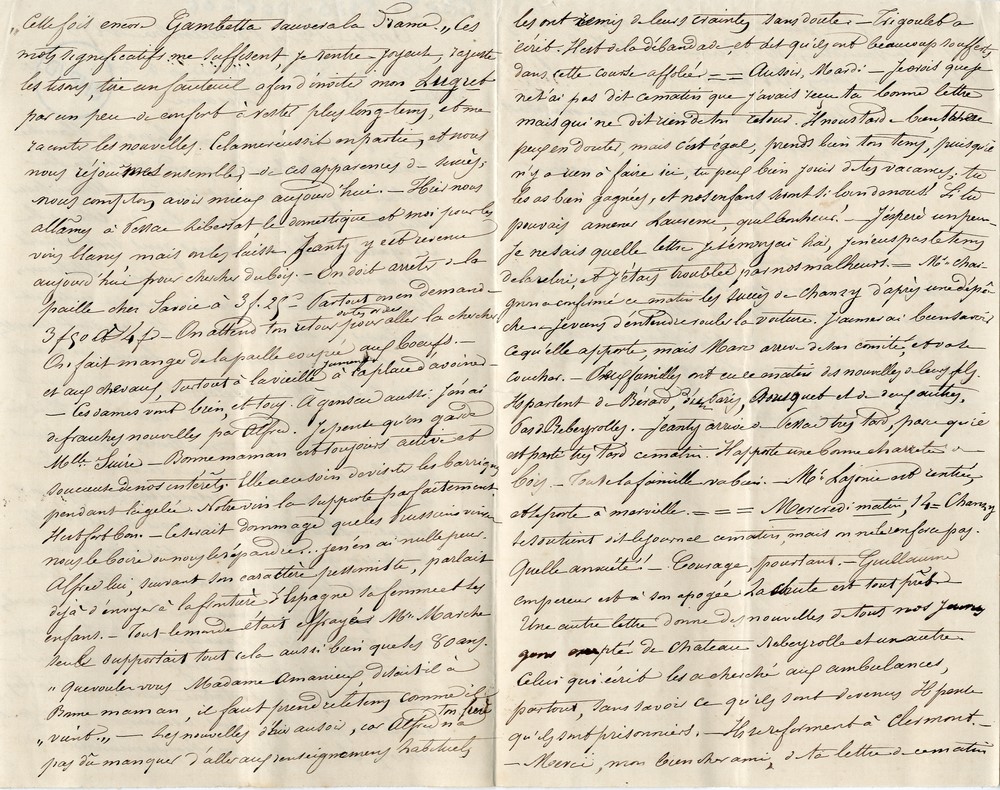 „Cette fois encore Gambetta sauvera la France„ Ces
mots significatifs me suffisent, je rentre joyeux, rajuste
les tisons, tire un fauteuil afin d'inviter mon
par un peu de confort à rester plus longtems, et me
raconter les nouvelles. Cela me réussit en partie, et nous
nous réjouimes ensemble, de ces apparences de succès,
nous comptons avoir mieux aujourd'hui. — Hier nous
allames à Pessac le domestique et moi pour les
mais on les laisse Jeanty y est revenu
aujourd'hui pour chercher du bois. — On doit arrêter de la
paille chez Savoie à 3f.25c Partout on en demande
3f50 et 4f — On attend ton retour pour aller la chercher
On fait manger de la paille coupée aux boeufs. —
et aux chevaux surtout à la vieille jument à la place d'avoine —
— Ces dames vont bien, et tous. A gensac aussi. J'en ai
de fraiches nouvelles par Alfred. Je pense qu'on garde
Mlle — Bonne maman est toujours active et
soucieuse de nos intérêts. Elle a eu soin de visiter les barriques
pendant la gelée. Notre vin la supporte parfaitement
Il est fort bon. — Ce serait dommage que les Prussiens vinssent
nous le boire ou nous le répandre.. je n'en ai nulle peur.
Alfred lui, suivant son caractère pessimiste, parlait
déjà d'envoyer à la frontière d'Espagne sa femme et les
enfans. — Tout le monde était effrayé Mr Marche
seul supportait tout cela aussi bien que ses 80 ans.
„Que voulez vous Madame Amanieux disait-il à
Bonne maman, il faut prendre le tems comme il
„vient„ — Les nouvelles d'hier au soir, car Alfred ton frère n'a
pas dû manquer d'aller aux renseignemens habituels
les ont remis de leurs craintes sans doute. — Trigoulet a
écrit. Il est de la débandade et dit qu'ils ont beaucoup souffert,
dans cette course affolée = = Au soir, Mardi — Je crois que je
ne t'ai pas dit ce matin que j'avais reçu ta bonne lettre
mais qui ne dit rien de ton retour. Il nous tarde
peux en douter, mais c'est égal, prends bien ton tems, puisqu'il
n'y a rien à faire ici, tu peux bien jouir de tes vacances, tu
les as bien gagnées, et nos enfans sont si loin de nous! Si tu
pouvais amener Laurence, quel bonheur. — J'espère un peu
Je ne sais quelle lettre je t'envoyai hier, je n'eus pas le tems
de la relire, et j'étais troublée par nos malheurs. = Mr
a confirmé ce matin les succès de Chanzy d'après une dépê-
che — Je viens d'entendre rouler la voiture. J'aimerai bien savoir
ce qu'elle apporte, mais Marc arrive de son comité, et va se
coucher. — familles ont eu ce matin des nouvelles de leurs fils.
Ils parlent de Bérard, Bousquet et de deux autres,
Pas de Rebeyrolles. — Jeanty arrive de Pessac très tard, parce qu'il
est parti très tard ce matin. Il apporte une bonne charretée de
bois. — Toute la famille va bien. — Mr Lajonie est rentré
et se porte à merveille. = = = Mercredi matin, 14 = Chanzy
se soutient dit le journal ce matin, mais on ne le renforce pas.
Quelle anxiété! — Courage, pourtant. — Guillaume
empereur est à son apogée La chute est tout près.
Une autre lettre donne des nouvelles de tous nos jeunes
gens excepté de Chateau Rebeyrolle et un autre.
Celui qui écrit les a cherché aux ambulances,
partout, sans savoir ce qu'ils sont devenus Il pense
qu'ils sont prisonniers. — Ils se reforment à Clermont. —
— Merci, mon bien cher ami, de ta lettre de ce matin